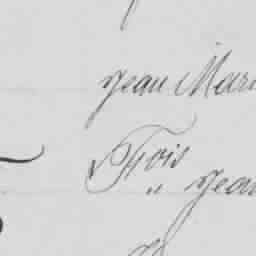 Jean Mari
Frois
" Jean